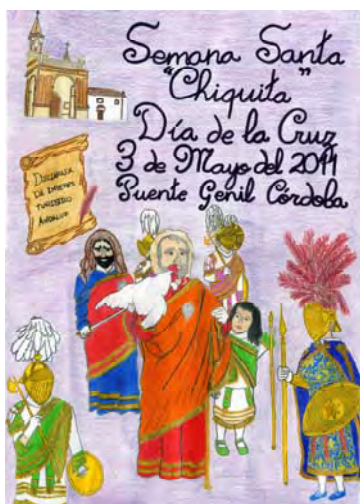 Semana Santa
"Chiquita"
Día de la Cruz
3 de Mayo del 2011
Puente Genil Córdoba
DE INTERÉS
TURÍSTICO
ANDALUZ